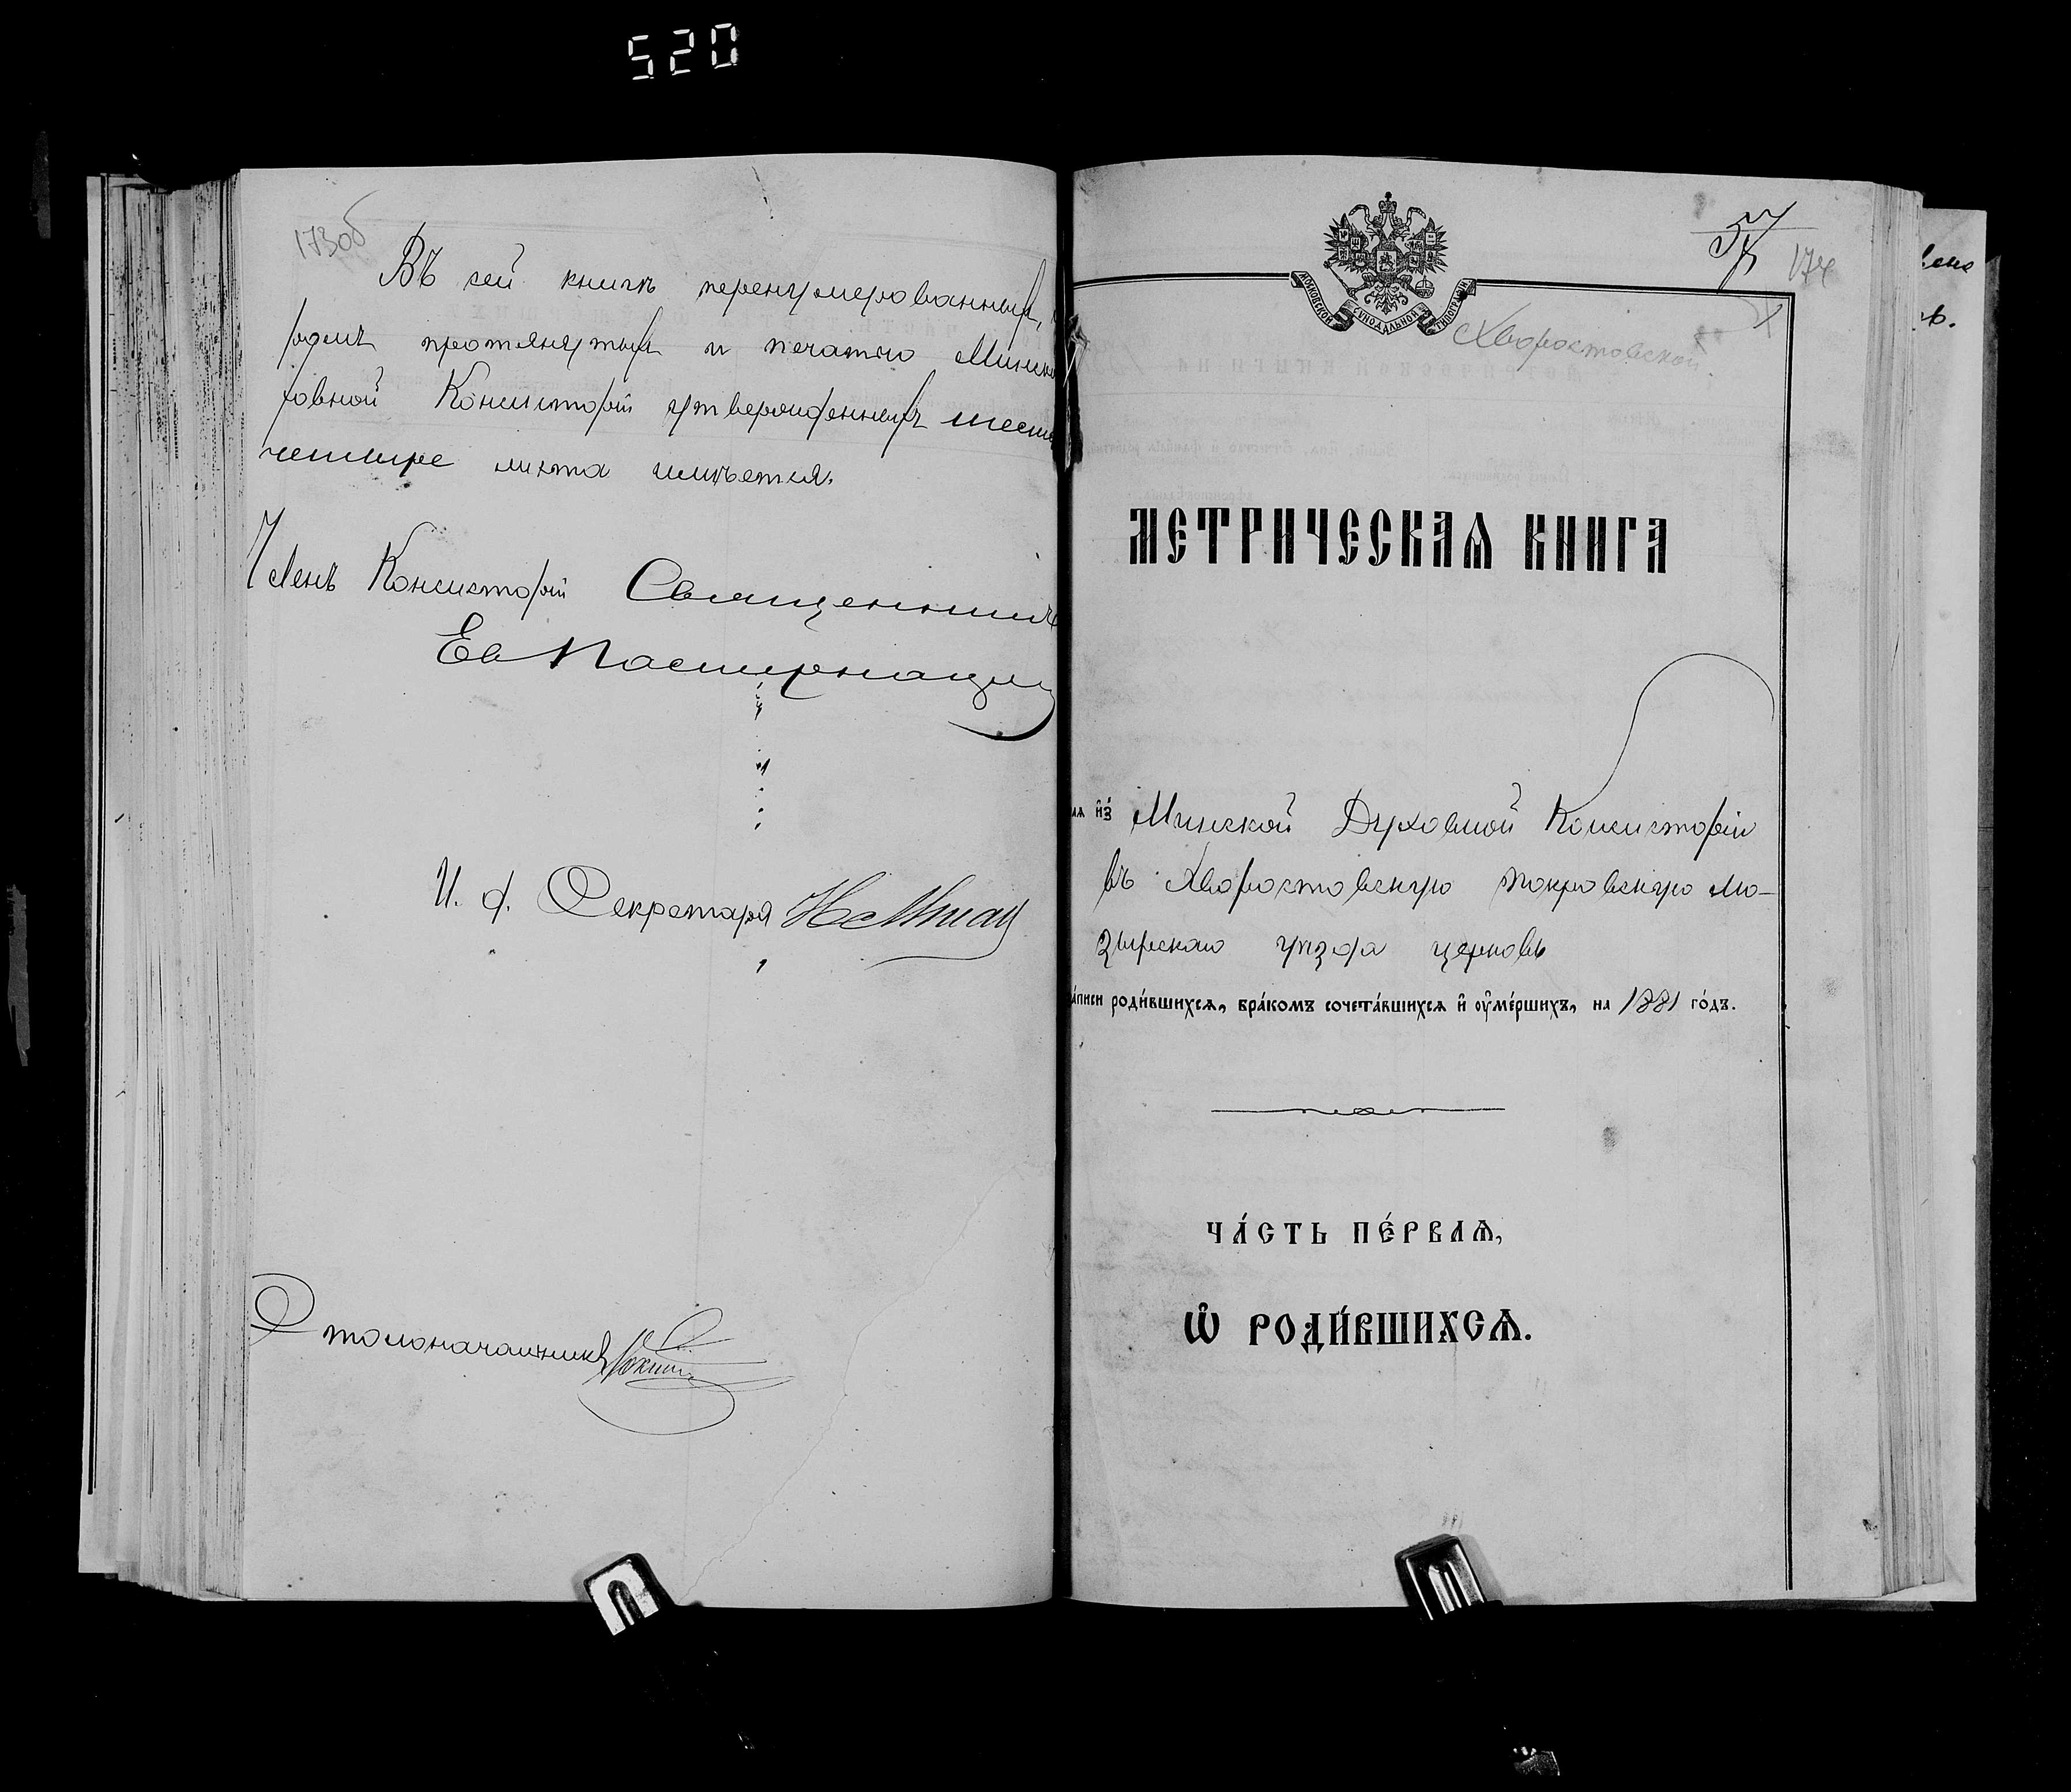 520
173об
Въ сей книгѣ перенумерованныхъ,
протянутыхъ и печатью Минск
ховной Консисторіи утвержденныхъ шест
четыре листа имѣется.
Членъ Консисторіи Священникъ
Ев
И. д. Секретаря
Столоначальникъ
174
МОСКОВСКОЙ СѴНОДАЛЬНОЙ ТИПОГРАФІИ
Хворостовской
МЕТРИЧЕСКАѦ КНИГА
и҆з̾ Минской Духовной Консисторіи
въ Хворостовскую покровскую Мо-
зырскаго уѣзда церковь
а́писи роди́вшихсѧ, бра́комъ сочета́вшихсѧ и҆ ᲂу҆ме́ршихъ, на 1881 го́дъ.
ЧА́СТЬ ПЕ́РВАѦ,
Ѽ РОДИ́ВШИХСѦ.